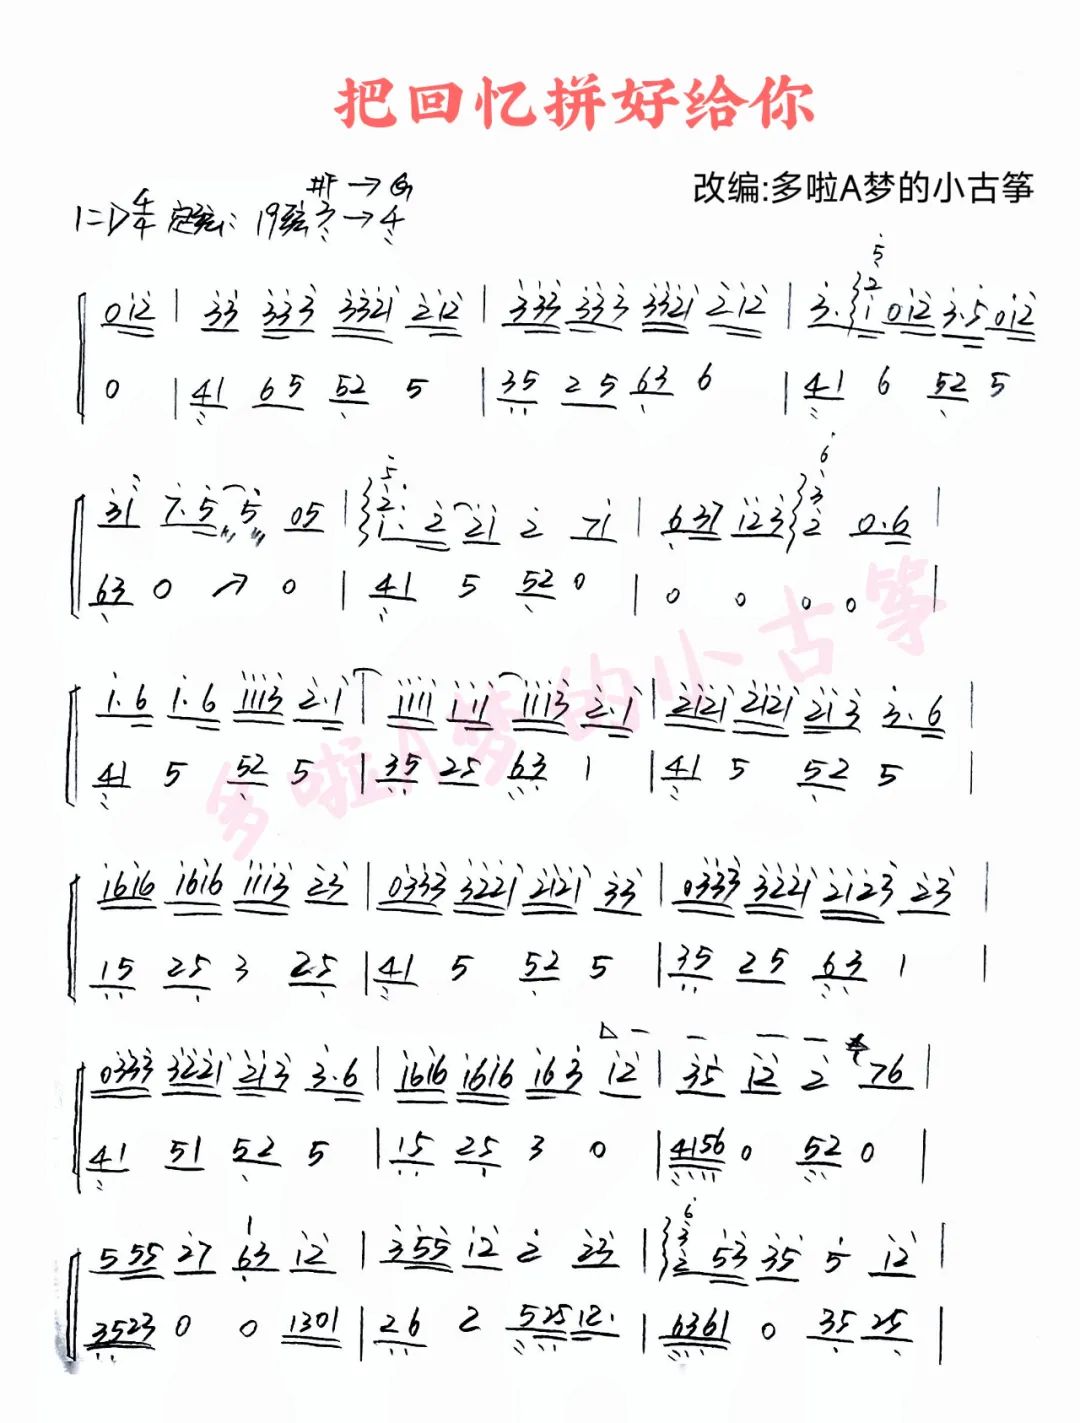 把回忆拼好给你
改编:多啦A梦的小古筝
#F→G
1=D 4/4 定弦: 19弦3→4
5
012 | 33 333 3321 212 | 333 333 3321 212 | 3. 2 1 012 3.5 012
0 | 41 65 52 5 | 35 25 63 6 | 41 6 52 5
31 7.5 5 05 | 5 2 1. 2 21 2 71 | 637 123 6 3 2 0.6 |
63 0 ↗ 0 | 41 5 52 0 | 0 0 0 0 |
1.6 1.6 1113 2.1 | 1111 111 1113 2.1 | 2121 2121 213 3.6 |
41 5 52 5 | 35 25 63 1 | 41 5 52 5 |
1616 1616 1113 23 | 0333 3221 2121 33 | 0333 3221 2123 23 |
15 25 3 25 | 41 5 52 5 | 35 25 63 1 |
0333 3221 213 3.6 | 1616 1616 163 12 | 35 12 2 76 |
41 51 52 5 | 15 25 3 0 | 4156 0 52 0 |
555 27 1 63 12 | 355 12 2 23 | 6 3 2 53 35 5 12 |
3523 0 0 1301 | 26 2 525 12. | 6361 0 35 25 |
多啦A梦的小古筝